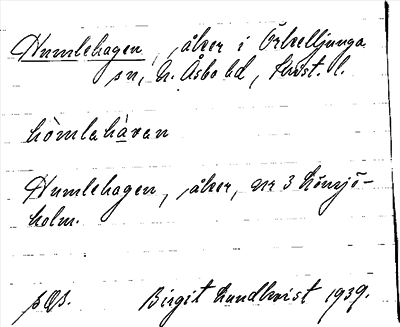 Humlehagen, åker i Örkelljunga
sn, N. Åsbo hd, Krist. l.
hòmlahàvan
Humlehagen, åker, nr 3 Könsjö-
holm.
Birgit Lundkvist 1939.